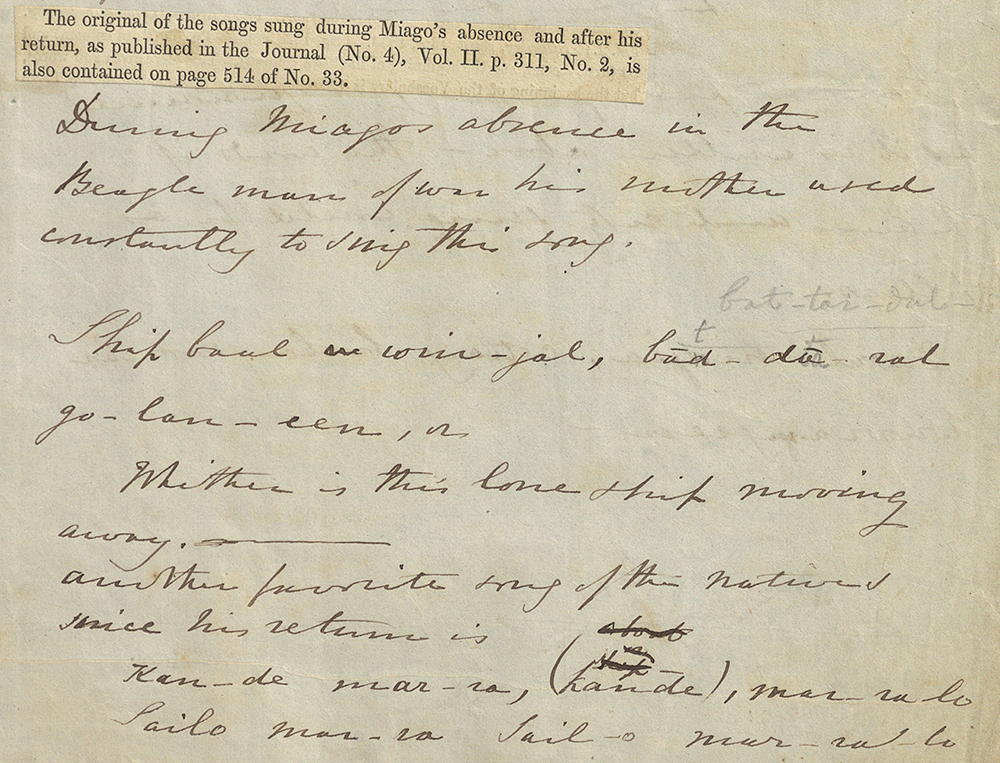 The original of the songs sung during Miago's absence and after his
return, as published in the Journal (No. 4), Vol. II. p. 311, No. 2, is
also contained on page 514 of No. 33.
During Miagos absence in the
Beagle man of war his mother used
constantly to sing this song.
bat-tar-dal-
t
Ship baal win-jal, bād-dā-ral
go-lan-een, or
Whither is this lone ship moving
away.
another favorite song of the natives
since his return is
about
ship
Kan-de mar-ra, (kan-de), mar-ra lo
Sailo mar-ra Sail-o mar-ra-lo